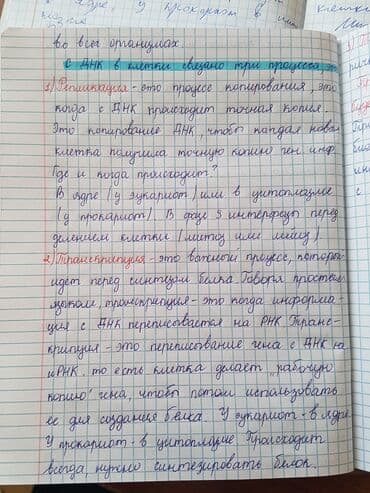 во всех организмах.
С ДНК в клетки связано три процесса,
1) Репликация - это процесс копирования, это
когда с ДНК происходит точная копия.
Это копирование ДНК, чтобы каждая новая
клетка получила точную копию ген. инф.
Где и когда происходит?
В ядре (у эукариот) или в цитоплазме
(у прокариот). В фазе S интерфазы перед
делением клетки (митоз или мейоз)
2) Транскрипция - это важный процесс, который
идет перед синтезом белка. Говоря простым
языком, транскрипция - это когда информа-
ция с ДНК переписывается на РНК. Транс-
крипция - это переписывание гена с ДНК на
иРНК, то есть клетка делает „рабочую
копию" гена, чтобы потом использовать
ее для создания белка. У эукариот - в ядре
У прокариот - в цитоплазме. Происходит
всегда, нужно синтезировать белок.